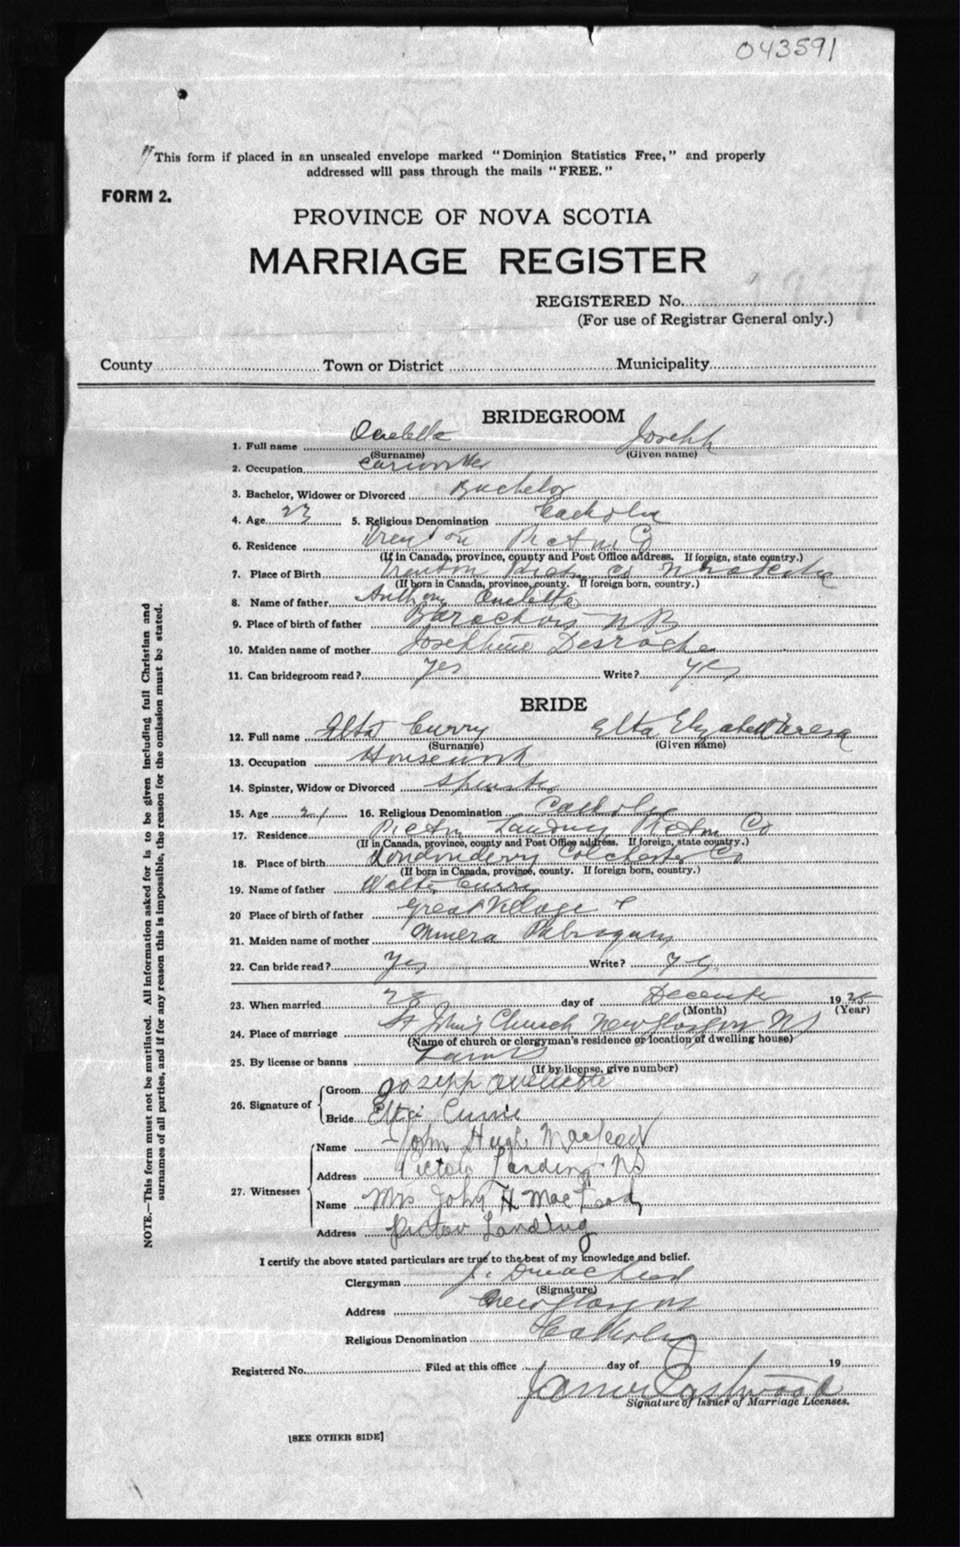 043591
"This form if placed in an unsealed envelope marked "Dominion Statistics Free," and properly
addressed will pass through the mails "FREE."
FORM 2.
PROVINCE OF NOVA SCOTIA
MARRIAGE REGISTER
REGISTERED No.
(For use of Registrar General only.)
County Town or District Municipality
BRIDEGROOM
1. Full name Ouelette Joseph
(Surname) (Given name)
2. Occupation Carworker
3. Bachelor, Widower or Divorced Bachelor
4. Age 23 5. Religious Denomination Catholic
6. Residence Trenton Pictou Co
(If in Canada, province, county and Post Office address. If foreign, state country.)
7. Place of Birth Trenton Pictou Co N Scotia
(If born in Canada, province, county. If foreign born, country.)
8. Name of father Anthony Ouelette
9. Place of birth of father Barachois N B
10. Maiden name of mother Josephine Desroche
11. Can bridegroom read? Yes Write? Yes
BRIDE
12. Full name Elta Curry Elta Elizabeth Teresa
(Surname) (Given name)
13. Occupation Housework
14. Spinster, Widow or Divorced Spinster
15. Age 21 16. Religious Denomination Catholic
17. Residence Pictou Landing Pictou Co
(If in Canada, province, county and Post Office address. If foreign, state country.)
18. Place of birth Londonderry Colchester Co
(If born in Canada, province, county. If foreign born, country.)
19. Name of father Walter Curry
20 Place of birth of father Great Village
21. Maiden name of mother
22. Can bride read? Yes Write? Yes
23. When married 28 day of December 1925
(Month) (Year)
24. Place of marriage St John's Church New Glasgow NS
(Name of church or clergyman's residence or location of dwelling house)
25. By license or banns Banns
(If by license, give number)
26. Signature of Groom Joseph Ouellette
Bride Elta Currie
27. Witnesses Name John Hugh MacLeod
Address Pictou Landing NS
Name Mrs John H MacLeod
Address Pictou Landing
I certify the above stated particulars are true to the best of my knowledge and belief.
Clergyman
(Signature)
Address New Glasgow
Religious Denomination Catholic
Registered No. Filed at this office day of 19
James Eastwood
Signature of Issuer of Marriage Licenses.
[SEE OTHER SIDE]
NOTE.—This form must not be mutilated. All information asked for is to be given including full Christian and
surnames of all parties, and if for any reason this is impossible, the reason for the omission must be stated.